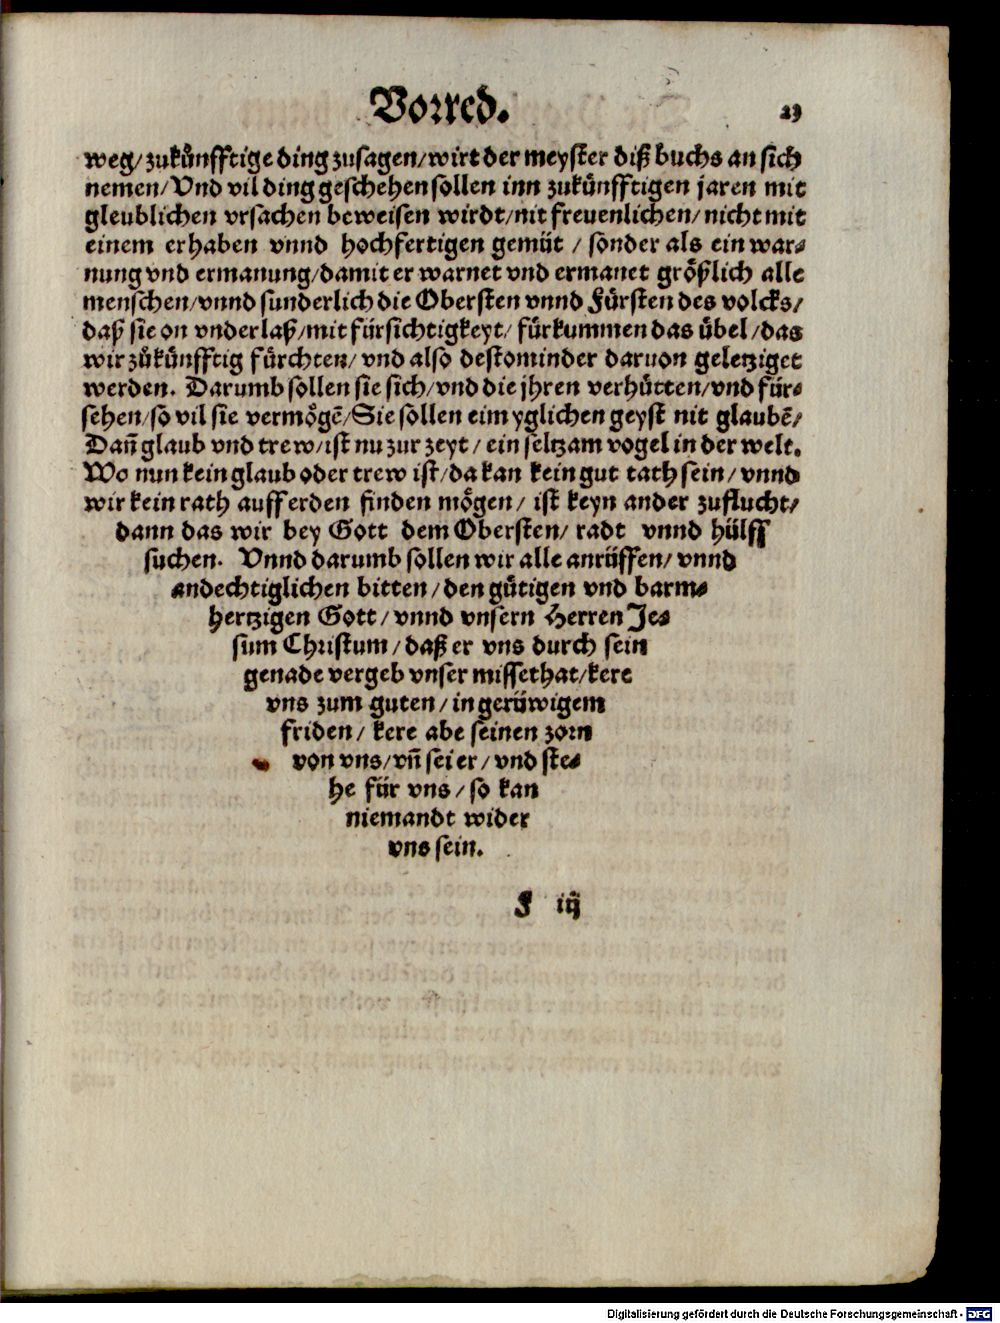 Vorred.
23
weg/ zukünfftige ding zusagen/ wirt der meyster diß buchs an sich
nemen/ Vnd vil ding geschehen sollen inn zukünfftigen jaren mit
gleublichen vrsachen beweisen wirdt/ nit freuenlichen/ nicht mit
einem erhaben vnnd hochfertigen gemüt / sonder als ein war⸗
nung vnd ermanung/ damit er warnet vnd ermanet größlich alle
menschen/ vnnd sunderlich die Obersten vnnd Fürsten des volcks/
daß sie on vnderlaß/ mit fürsichtigkeyt/ fürkummen das übel/ das
wir zůkünfftig fürchten/ vnd also destominder daruon geletziget
werden. Darumb sollen sie sich/ vnd die jhren verhütten/ vnd für⸗
sehen/ so vil sie vermögẽ/ Sie sollen eim yglichen geyst nit glaubẽ/
Dañ glaub vnd trew/ ist nu zur zeyt / ein seltzam vogel in der welt.
Wo nun kein glaub oder trew ist/ da kan kein gut tath sein/ vnnd
wir kein rath auff erden finden mögen/ ist keyn ander zuflucht/
dann das wir bey Gott dem Obersten/ radt vnnd hülff
suchen. Vnnd darumb sollen wir alle anrüffen/ vnnd
andechtiglichen bitten/ den gütigen vnd barm⸗
hertzigen Gott/ vnnd vnsern Herren Je⸗
sum Christum/ daß er vns durch sein
genade vergeb vnser missethat/ kere
vns zum guten/ in gerüwigem
friden/ kere abe seinen zorn
von vns/ vñ sei er/ vnd ste⸗
he für vns/ so kan
niemandt wider
vns sein.
F iij
Digitalisierung gefördert durch die Deutsche Forschungsgemeinschaft - DFG